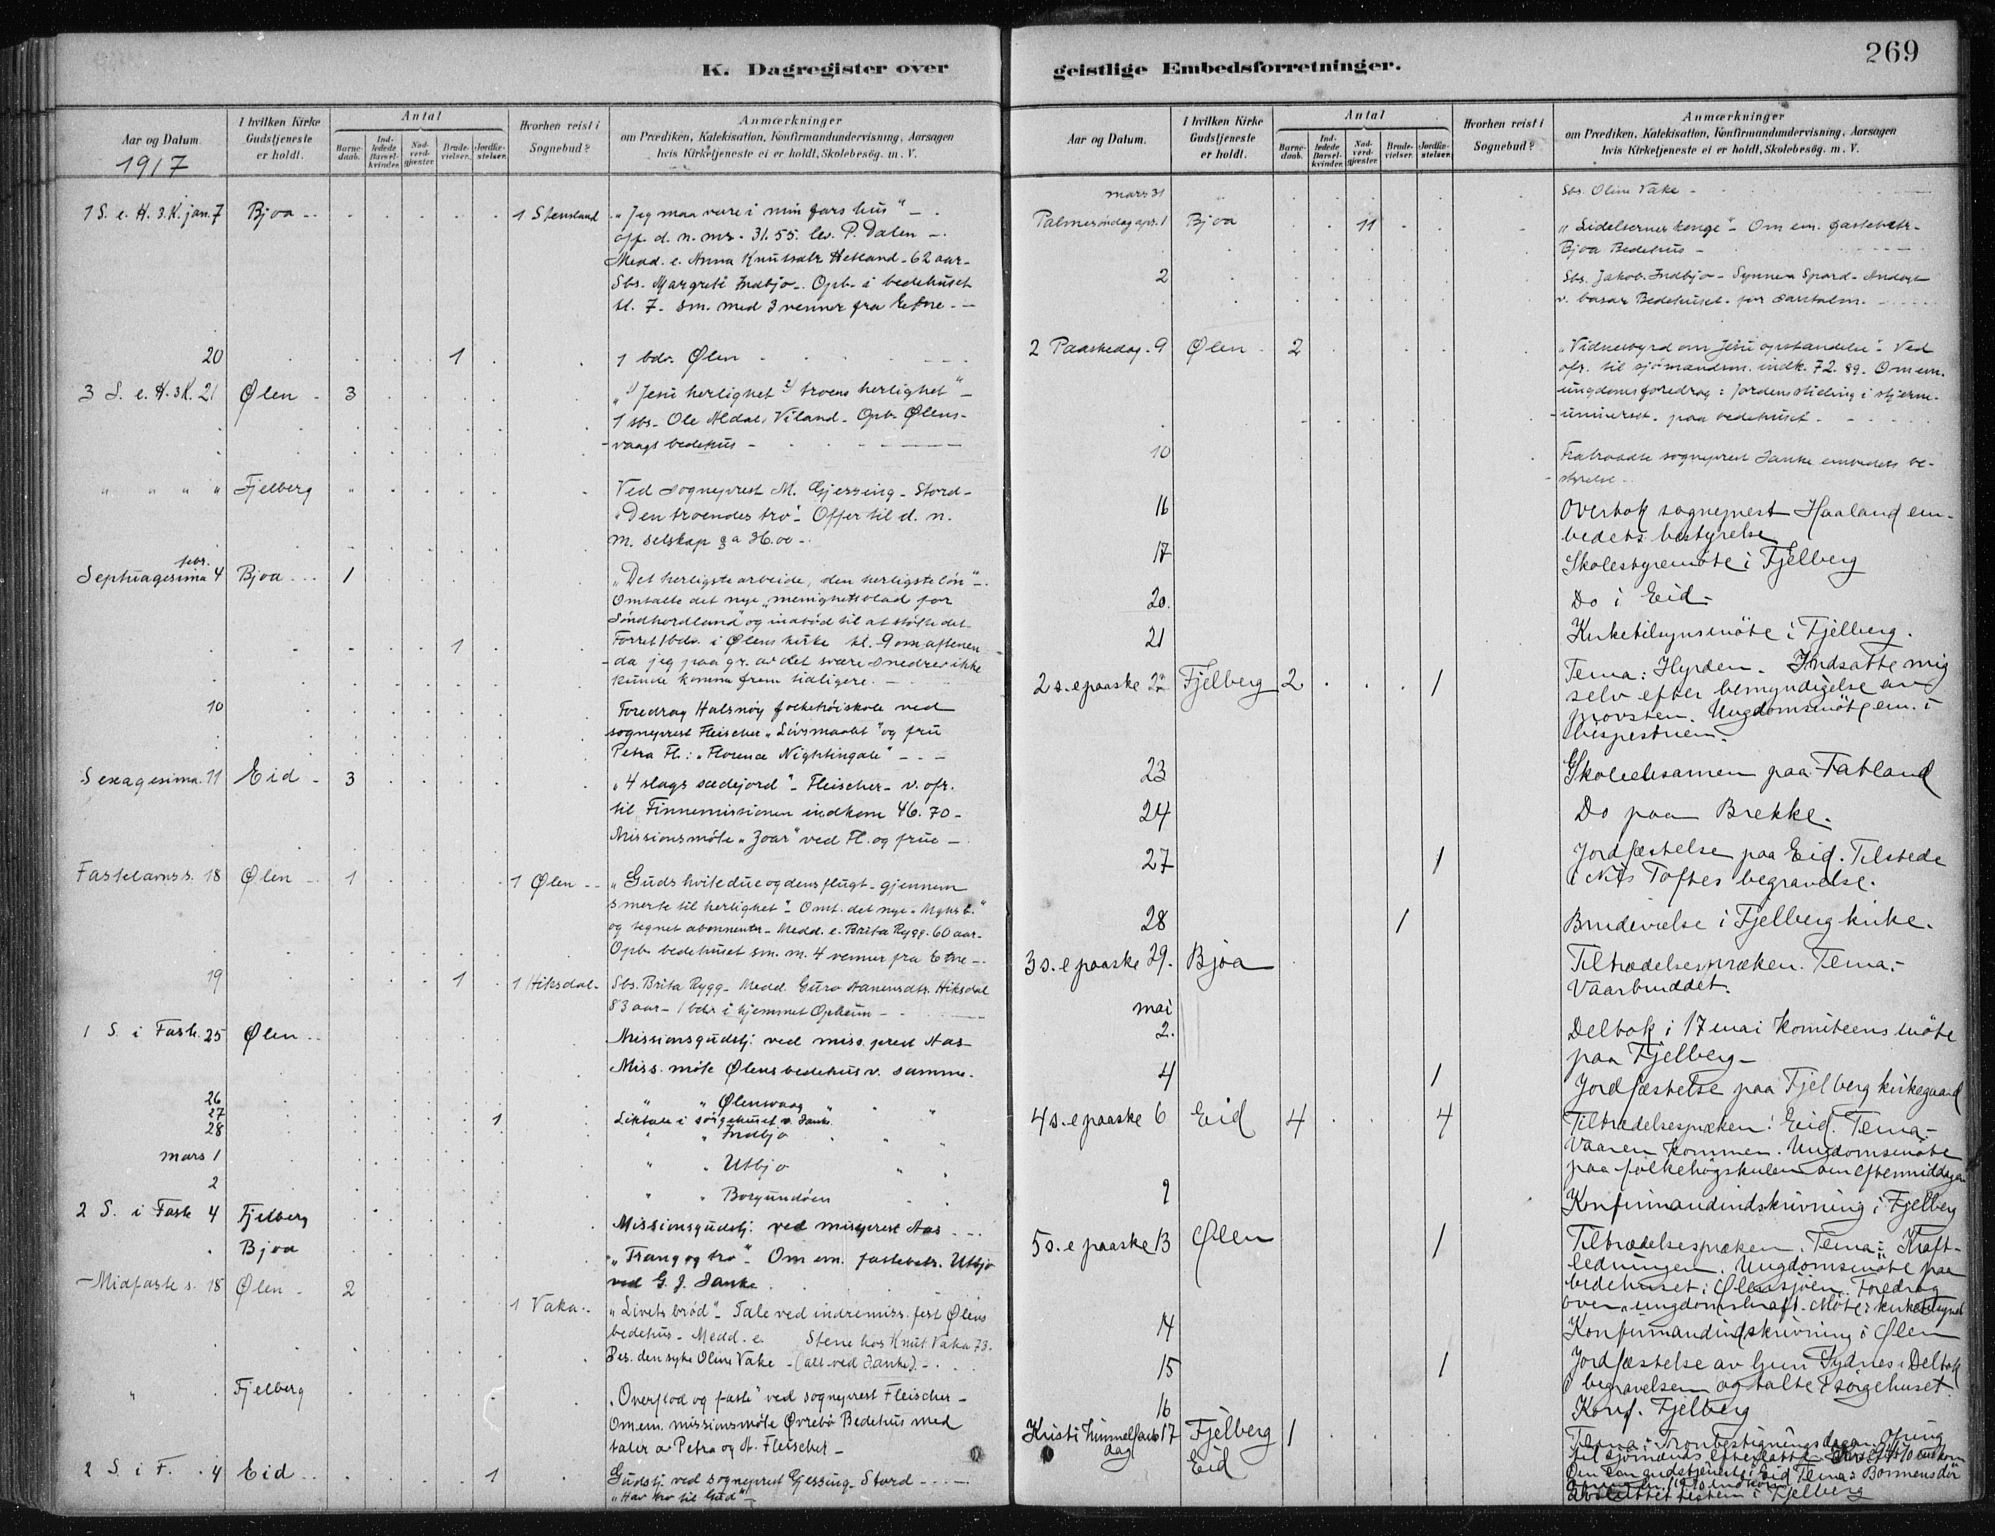 269
K. Dagregister over geistlige Embedsforretninger.
Aar og Datum.
I hvilken Kirke Gudstjeneste er holdt.
Antal
Barnedaab.
Indledede Barselkvinder.
Nadverdgjester.
Brudevielser.
Jordfæstelser.
Hvorhen reist i Sognebud?
Anmærkninger
om Prædiken, Katekisation, Konfirmandundervisning, Aarsagen
hvis Kirketjeneste ei er holdt, Skolebesøg. m. V.
1917
1 S. e. H. 3. K. jan. 7 Bjoa 1 Stensland "Jeg maa være i min fars hus" -
off. d. n. ms. 31.55. lev. P. Dalen -
Medd. e. Anna Knutsdtr Hetland - 62 aar -
Sbs. Margreti Indbjo - Opb. i bedehuset
kl. 7. sm. med 3 venner fra Etne -
20 1 1 bdv. Ølen
3 S. e. H. 3 K. 21 Ølen 3 "1) Jesu herlighet 2) troens herlighet" -
1 sbs. Ole Aldal, Viland - Opb. Ølens-
vaags bedehus -
" " " " Fjelberg Ved sogneprest M. Gjessing - Stord -
"Den troendes tro" - Offer til d. n.
m. selskap 36.00 -
Septuagesima febr. 4 Bjoa 1 "Det herligste arbeide, den herligste løn" -
Omtalte det nye "menighetsblad for
Søndhordland" og indbød til at støtte det -
1 Forret. 1 bdv. i Ølens kirke kl. 9 om aftenen
da jeg paa gr. av det svære snedrev ikke
kunde komme frem tidligere. -
10 Foredrag Halsnøy folkehøiskole ved
sogneprest Fleischer "Livsmaalet" og fru
Petra Fl.: "Florence Nightingale" -
Sexagesima. 11 Eid 3 "4 slags sædejord" - Fleischer - v. ofr.
til Finnemissionen indkom 46.70 -
Missionsmøte "Zoar" ved Fl. og frue -
Fastelavnss. 18 Ølen 1 1 Ølen "Guds hvite due og dens flugt - gjennem
smerte til herlighet" - Omt. det nye
og tegnet abonnenter - Medd. e. Brita Rygg. 60 aar -
Opb. bedehuset sm. m. 4 venner fra Etne -
19 1 1 Hiksdal Sbs. Brita Rygg - Medd. Guro Aanensdtr. Hiksdal
83 aar - 1 bdv i hjemmet Opheim -
1 S. i Faste. 25 Ølen Missionsgudstj. ved miss. prest Aas
Miss. møte Ølens bedehus v. samme.
26 " " Ølensvaag " "
27 1 Liktale i sørgehuset v. Janke
28 " " Indbjo " "
mars 1 " " Utbjo
2 " " Borgundøen
2 S. i Faste 4 Fjelberg Missionsgudstj. ved misprest Aas
Bjoa "Trang og tro" - Om em. fastebetr. Utbjo
ved G. J. Janke
Midfaste s. 18 Ølen 2 1 Vaka "Livets brød" - Tale ved indremiss. fest Ølens
bedehus - Medd. e. Stene hos Knut Vaka 73.
Bes. den syke Oline Vake - (alt ved Janke) -
" Fjelberg "Overflod og faste" ved sogneprest Fleischer -
Om em. missionsmøte Øvrebø Bedehus med
taler av Petra og A. Fleischer -
2 S. i F. 4 Eid 1 Gudstj. ved sogneprest Gjessing - Stord -
"Hav tro til Gud" -
mars 31 Sbs. Oline Vake -
Palmesøndag apr. 1 Bjoa 11 "Lidelsernes konge" - Om em. fastebetr.
Bjoa Bedehus -
2 Sbs. Jakob Indbjo - Synneva - Andagt
v. basar Bedehuset
2 Paaskedag. 9 Ølen 2 "Vidnesbyrd om Jesu opstandelse" - Ved
ofr. til sjømandsm. indk. 72.89. Om em.
ungdomsforedrag: Jordens stilling i stjerne-
universet. paa bedehuset.
10 Fratraadte sogneprest Janke embedets be-
styrelse.
16 Overtok sogneprest Haaland em-
bedets bestyrelse
17 Skolestyremøte i Fjelberg
20. Do i Eid -
21 Kirketilsynsmøte i Fjelberg.
2 s. e paaske 22 Fjelberg 2 1 Tema: Hyrden. Indsatte mig
selv efter bemyndigelse av
provsten. Ungdomsmøte em. i
bespestuen.
23 Skoleeksamen paa Fatland
24 Do paa Brekke.
27 1 Jordfæstelse paa Eid. Tilstede
i Nils Toftes begravelse.
28 1 Brudevielse i Fjelberg kirke.
3 s. e paaske 29. Bjoa Tiltrædelsespræken. Tema:
Vaarbruddet.
mai
2. Deltok i 17 mai komiteens møte
paa Fjelberg -
4 1 Jordfæstelse paa Fjelberg kirkegaard
4 s. e paaske 6 Eid 4 4 Tiltrædelsespræken i Eid. Tema:
Vaaren kommer. Ungdomsmøte
paa folkehøgskulen om eftermiddagen
9 Konfirmandindskrivning i Fjelberg
5 s. e paaske 13 Ølen 1 Tiltrædelsespræken. Tema: Kraft-
ledningen. Ungdomsmøte paa
bedehuset i Ølensjøen. Foredrag
over ungdomskraft. Møte i kirketilsynet
14 Konfirmandindskrivning i Ølen
15 1 Jordfæstelse av Tydnes. Deltok
i begravelsen og talte i sørgehuset.
16 Konf. Fjelberg
Kristi himmelfartsdag 17 Fjelberg 1 Tema: Tronbestigningsdagen. Ofring
til sjømænds efterlatte
Eid Om em gudstjeneste i Eid Tema: Bønnens dør
i Fjelberg